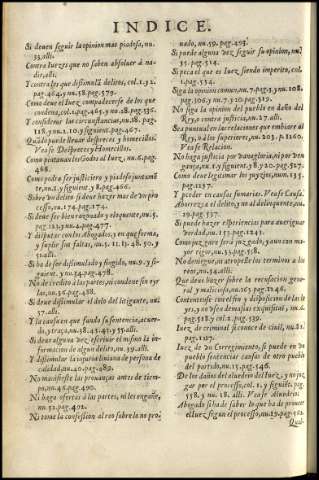 INDICE.
Si deuen seguir la opinion mas piadosa, nu.
33, alli.
Contra Iuezes que no saben absoluer à na-
die, alli.
Y contra los que dissimulã delitos, col. 1. 92.
pag. 464. y nu. 58. pag. 579.
Como deue el Iuez compadecerse de los que
condena, col. 1. pag. 465. y nu. 28. pag. 536.
Y considerar las circunstancias, nu. 18. pag.
118. y nu. 2. 10. y siguient. pag. 467.
Quãdo puede lleuar despreces y homezillos.
Vease Desprezes y Homezillos.
Como pintauan los Godos al Iuez, nu. 6. pag.
468.
Como pedra ser justiciero y piadoso juntamẽ
te, nu. 1. y siguient. y 8. pag. 466.
Sobre vn delito si deue hazer mas de vn pro-
cesso, nu. 174. pag. 174.
Si deue ser bien razonado y eloquente, nu. 5.
pag. 123. y nu. 4. pag. 477.
Y disputar con los abogados, y en que forma,
y suplir sus faltas, nu. 5. 11. 17. 48. 50. y
51. alli.
Si ha de ser dissimulado y fingido, nu. 9. y si-
guient. y nu. 34. pag. 478.
No de credito à las partes, ni condene sin oyr
las, nu. 36. pag. 488.
Si deue dissimular el dolo del litigante, nu.
37. alli.
Y la causa en que fundo su sentencia, acuer-
do, y traça, nu. 38. 45. 41. y 55. alli.
Si deue alguna vez escriuir el mismo la in-
formacion de algun delito, nu. 39. alli.
Y dissimular la injuria liuiana de persona de
calidad, nu. 40. pag. 489.
No manifieste las prouanças antes de tiem-
po, nu. 46. pag. 490.
Ni haga ofertas à las partes, ni les engañe,
nu. 52. pag. 491.
Ni tome la confession al reo sobre lo no pro-
uado, nu. 59. pag. 493.
Si puede alguna vez seguir su opinion, nu.
35. pag. 514.
Si peca el que es Iuez siendo imperito, col.
1. pag. 514.
Siga la opinion comun, nu. 7. pag. 93. y nu. 108.
pag. 106. y nu. 7. y 20. pag. 519.
No siga la opinion del pueblo en daño del
Rey, ò contra justicia, nu. 27. alli.
Sea puntual en las relaciones que embiare al
Rey, ò à los superiores, nu. 203. p. 1160.
Vease Relacion.
No haga justicia por vanagloria, ni por ven-
gança, nu. 61. y siguient. y 78. y 20. pag. 527.
Como deue legitimar los pupilos, num. 135.
pag. 1237.
Y proceder en causas sumarias. Vease Causa.
Aborrezca el delito, y no al delinquente, nu.
29. pag. 537.
Si puede hazer esperiencias para aueriguar
verdad, nu. 153. pag. 1243.
Como juzgara será juzgado, y aun con ma-
yor rigor, nu. 33. pag. 538.
No denieguen, ni atropelle los terminos à los
reos, nu. 54. alli.
Que deue hazer sobre la recusacion gene-
ral y maliciosa, nu. 163. pag. 1246.
Contentese con el fin y disposicion de las le-
yes, y no vsen demasias esquisitas, nu. 6.
pag. 518. y col. 2. pag. 539.
Iuez de criminal si conoce de ciuil, nu. 81.
pag. 1127.
Iuez de vn Corregimiento, si puede en vn
pueblo sentenciar causas de otro pueblo
del partido, nu. 15. pag. 546.
De los daños del aluedrio del Iuez, y no juz
gar por el processo, col. 1. y siguiẽt. pag.
558. y nu. 18. alli. Vease Aluedrio.
Abogado si ha de saber lo que ha de proueer
el Iuez segun el processo, nu. 19. pag. 561.
Qual-